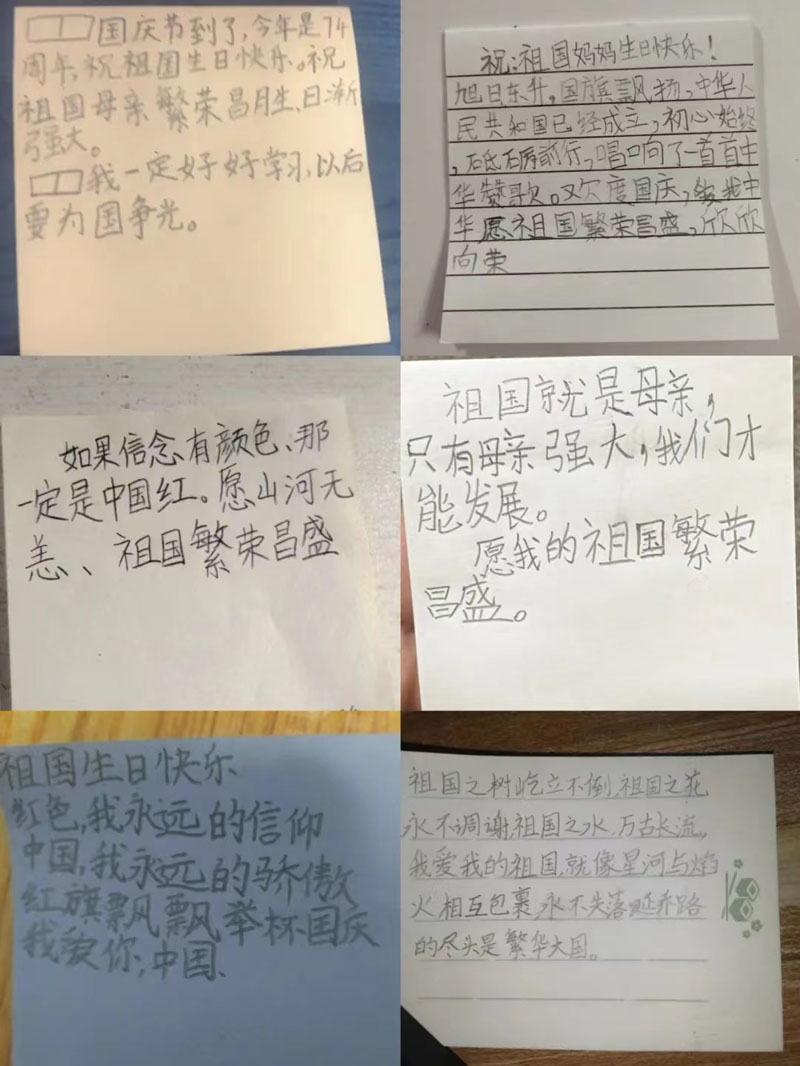 国庆节到了,今年是74
周年,祝祖国生日快乐。祝
祖国母亲繁荣昌盛、日渐
强大。
我一定好好学习,以后
要为国争光。
祝:祖国妈妈生日快乐!
旭日东升,国旗飘扬,中华人
民共和国已经成立,初心始终
,砥砺前行,唱响了一首首中
华赞歌。又欠度国庆,我中
华愿祖国繁荣昌盛,欣欣
向荣
如果信念有颜色、那
一定是中国红。愿山河无
恙、祖国繁荣昌盛
祖国就是母亲,
只有母亲强大,我们才
能发展。
愿我的祖国繁荣
昌盛。
祖国生日快乐
红色,我永远的信仰
中国,我永远的骄傲
红旗飘飘举杯国庆
我爱你,中国.
祖国之树屹立不倒,祖国之花
永不调谢,祖国之水,万古长流,
我爱我的祖国,就像星河与焰
火相互包裹,永不失落,延乔路
的尽头是繁华大国。